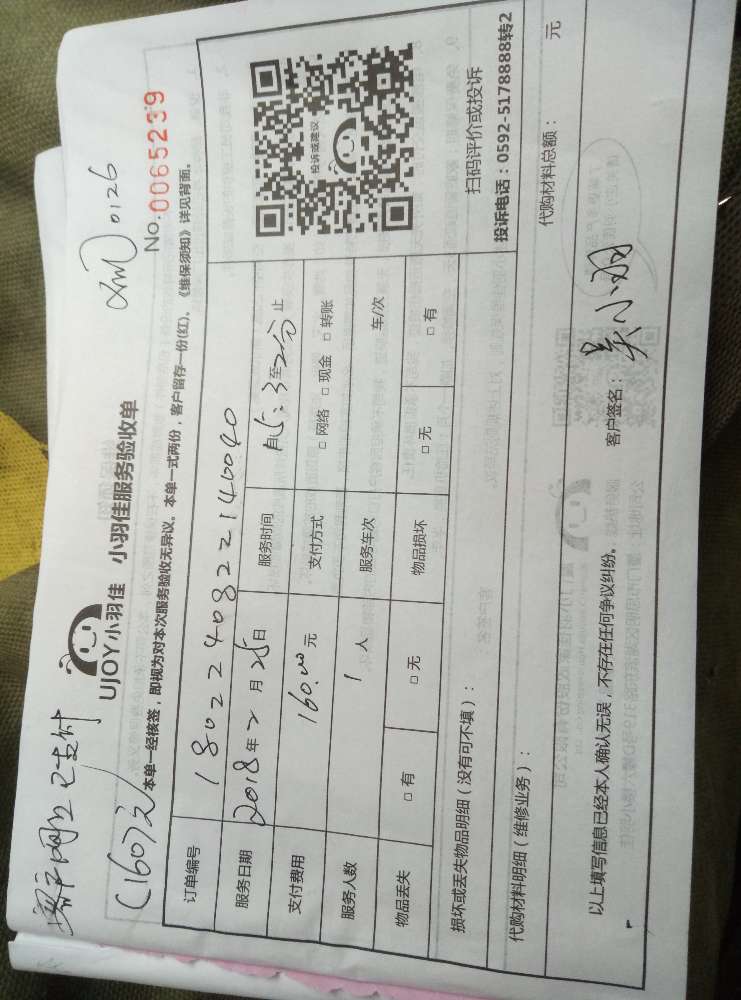 客户网上已支付
(160元)
0126
UJOY小羽佳 小羽佳服务验收单
No.0065239
本单一经核签，即视为对本次服务验收无异议。本单一式两份，客户留存一份(红)、《维保须知》详见背面。
订单编号 18022408322140040
服务日期 2018年2月25日 服务时间 自 至 止
支付费用 160.00元 支付方式 □ 网络 □ 现金 □ 转账
服务人数 1 人 服务车次 车/次
物品丢失 □ 有 □ 无 物品损坏 □ 无 □ 有
投诉或建议
扫码评价或投诉
投诉电话：0592-5178888转2
损坏或丢失物品明细（没有可不填）：
代购材料明细（维修业务）： 代购材料总额： 元
以上填写信息已经本人确认无误，不存在任何争议纠纷。 客户签名： 吴小羽